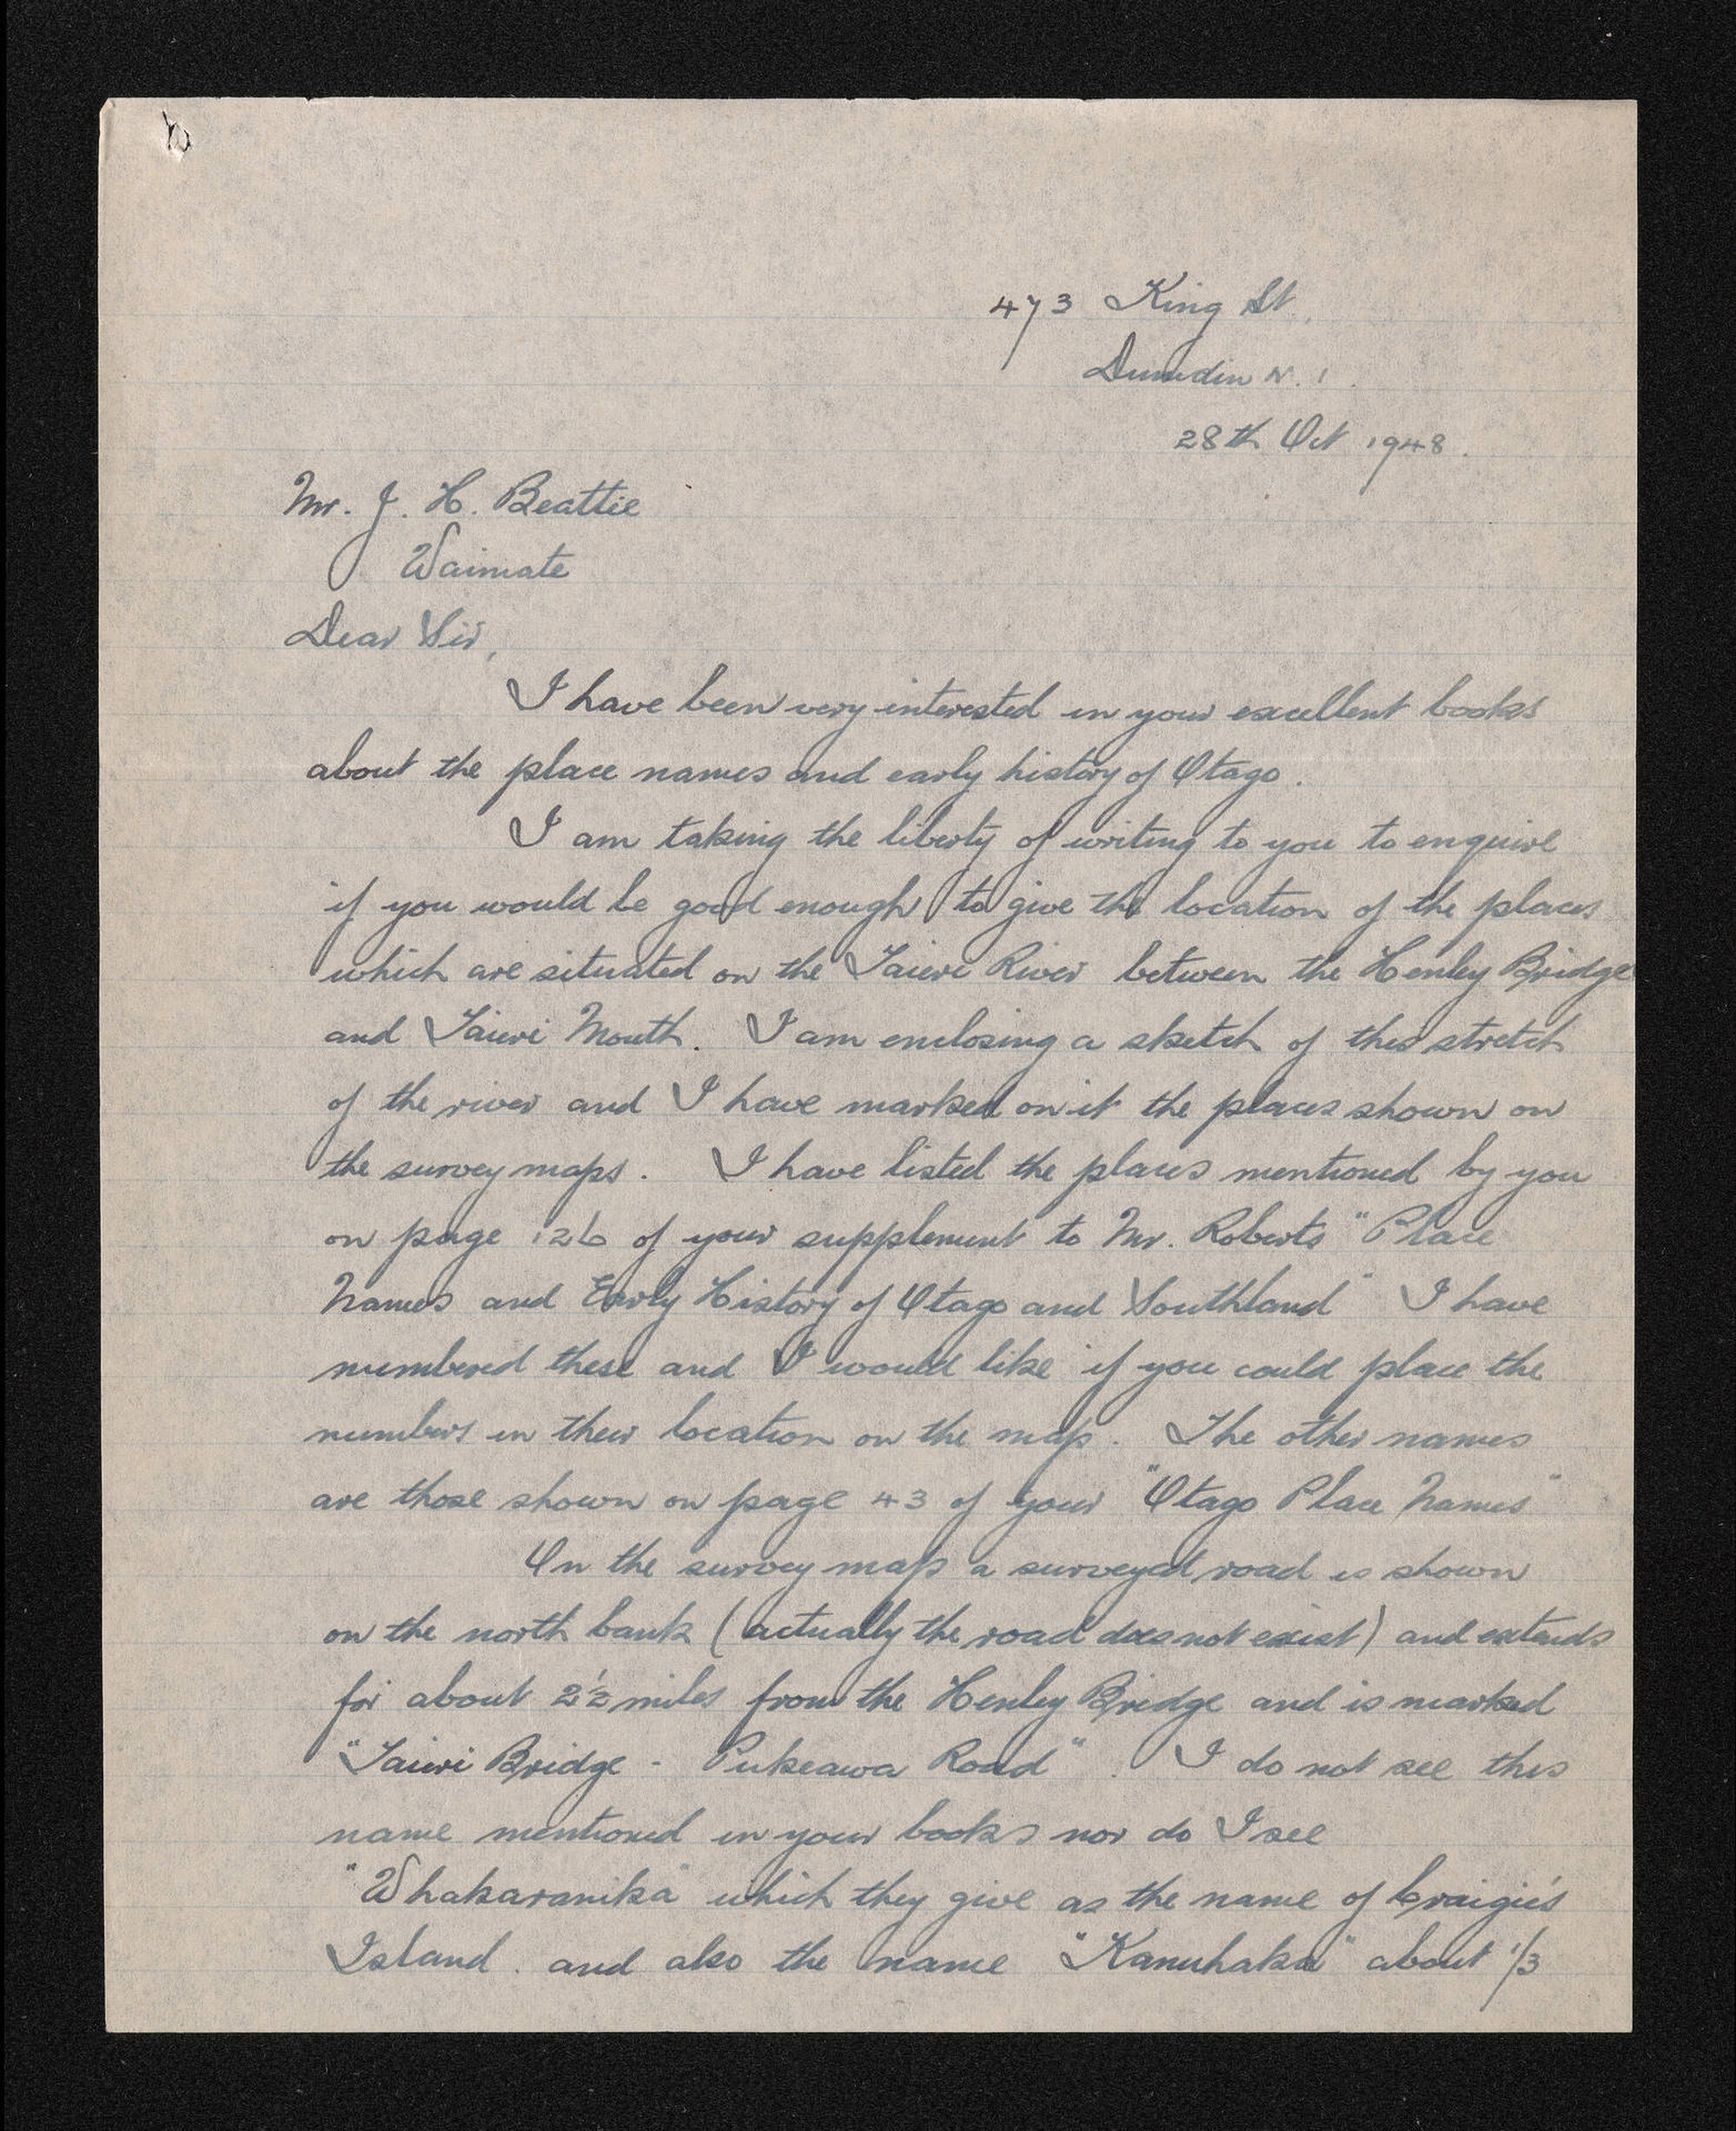 473 King St.
Dunedin N. 1.
28th Oct 1948.
Mr. J. H. Beattie
Waimate
Dear Sir,
I have been very interested in your excellent books
about the place names and early history of Otago.
I am taking the liberty of writing to you to enquire
if you would be good enough to give the location of the places
which are situated on the Taieri River between the Henley Bridge
and Taieri Mouth. I am enclosing a sketch of this stretch
of the river and I have marked on it the places shown on
the survey maps. I have listed the places mentioned by you
on page 126 of your supplement to Mr. Roberts "Place
Names and Early History of Otago and Southland" I have
numbered these and I would like if you could place the
numbers in their location on the map. The other names
are those shown on page 43 of your "Otago Place Names"
On the survey map a surveyed road is shown
on the north bank (actually the road does not exist) and extends
for about 2½ miles from the Henley Bridge and is marked
"Taieri Bridge - Pukeawa Road". I do not see this
name mentioned in your books nor do I see
"Whakaranika" which they give as the name of Craigie's
Island. and also the name "Kanuhaka" about 1/3